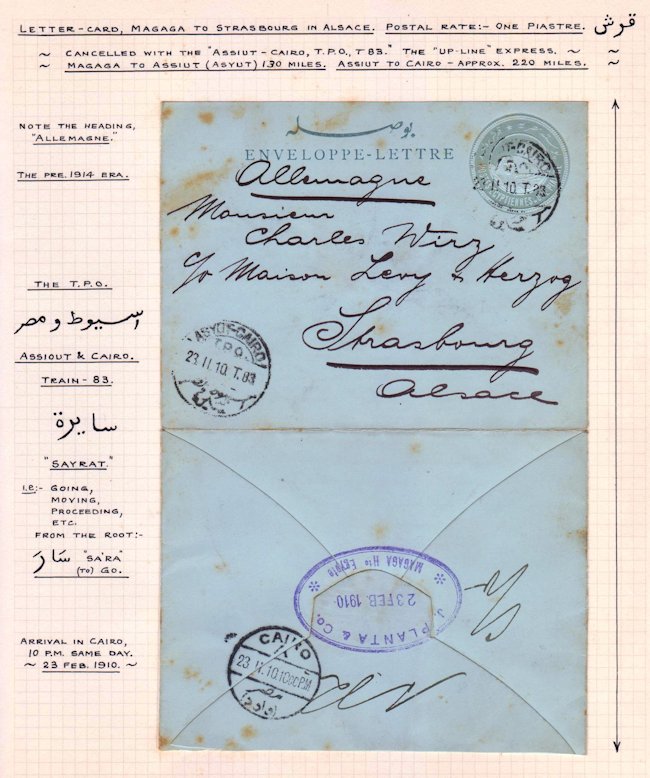 LETTER-CARD, MAGAGA TO STRASBOURG IN ALSACE. POSTAL RATE:- ONE PIASTRE. قرش
~ CANCELLED WITH THE "ASSIUT-CAIRO, T.P.O., T 83." THE "UP-LINE" EXPRESS. ~
~ MAGAGA TO ASSIUT (ASYUT) 130 MILES. ASSIUT TO CAIRO - APPROX. 220 MILES. ~
NOTE THE HEADING,
"ALLEMAGNE."
THE PRE. 1914 ERA.
THE T.P.O.
اسيوط و مصر
ASSIOUT & CAIRO.
TRAIN - 83.
سايرة
"SAYRAT."
i.e:- GOING,
MOVING,
PROCEEDING,
ETC.
FROM THE ROOT:-
سَارَ "SA'RA"
(TO) GO.
ARRIVAL IN CAIRO,
10 P.M. SAME DAY.
~ 23 FEB. 1910. ~
بوصله
ENVELOPPE-LETTRE
Allemagne
Monsieur
Charles Wirz
c/o Maison Levy & Herzog
Strasbourg
Alsace
T-CAIRO
23 II. 10. T. 83
ASYUT-CAIRO
T.P.O.
23 II. 10. T. 83
MAGAGA Hte EGYPTE
23 FEB. 1910
J. PLANTA & CO.
CAIRO
23 II. 10. 10 00 P.M
مصر